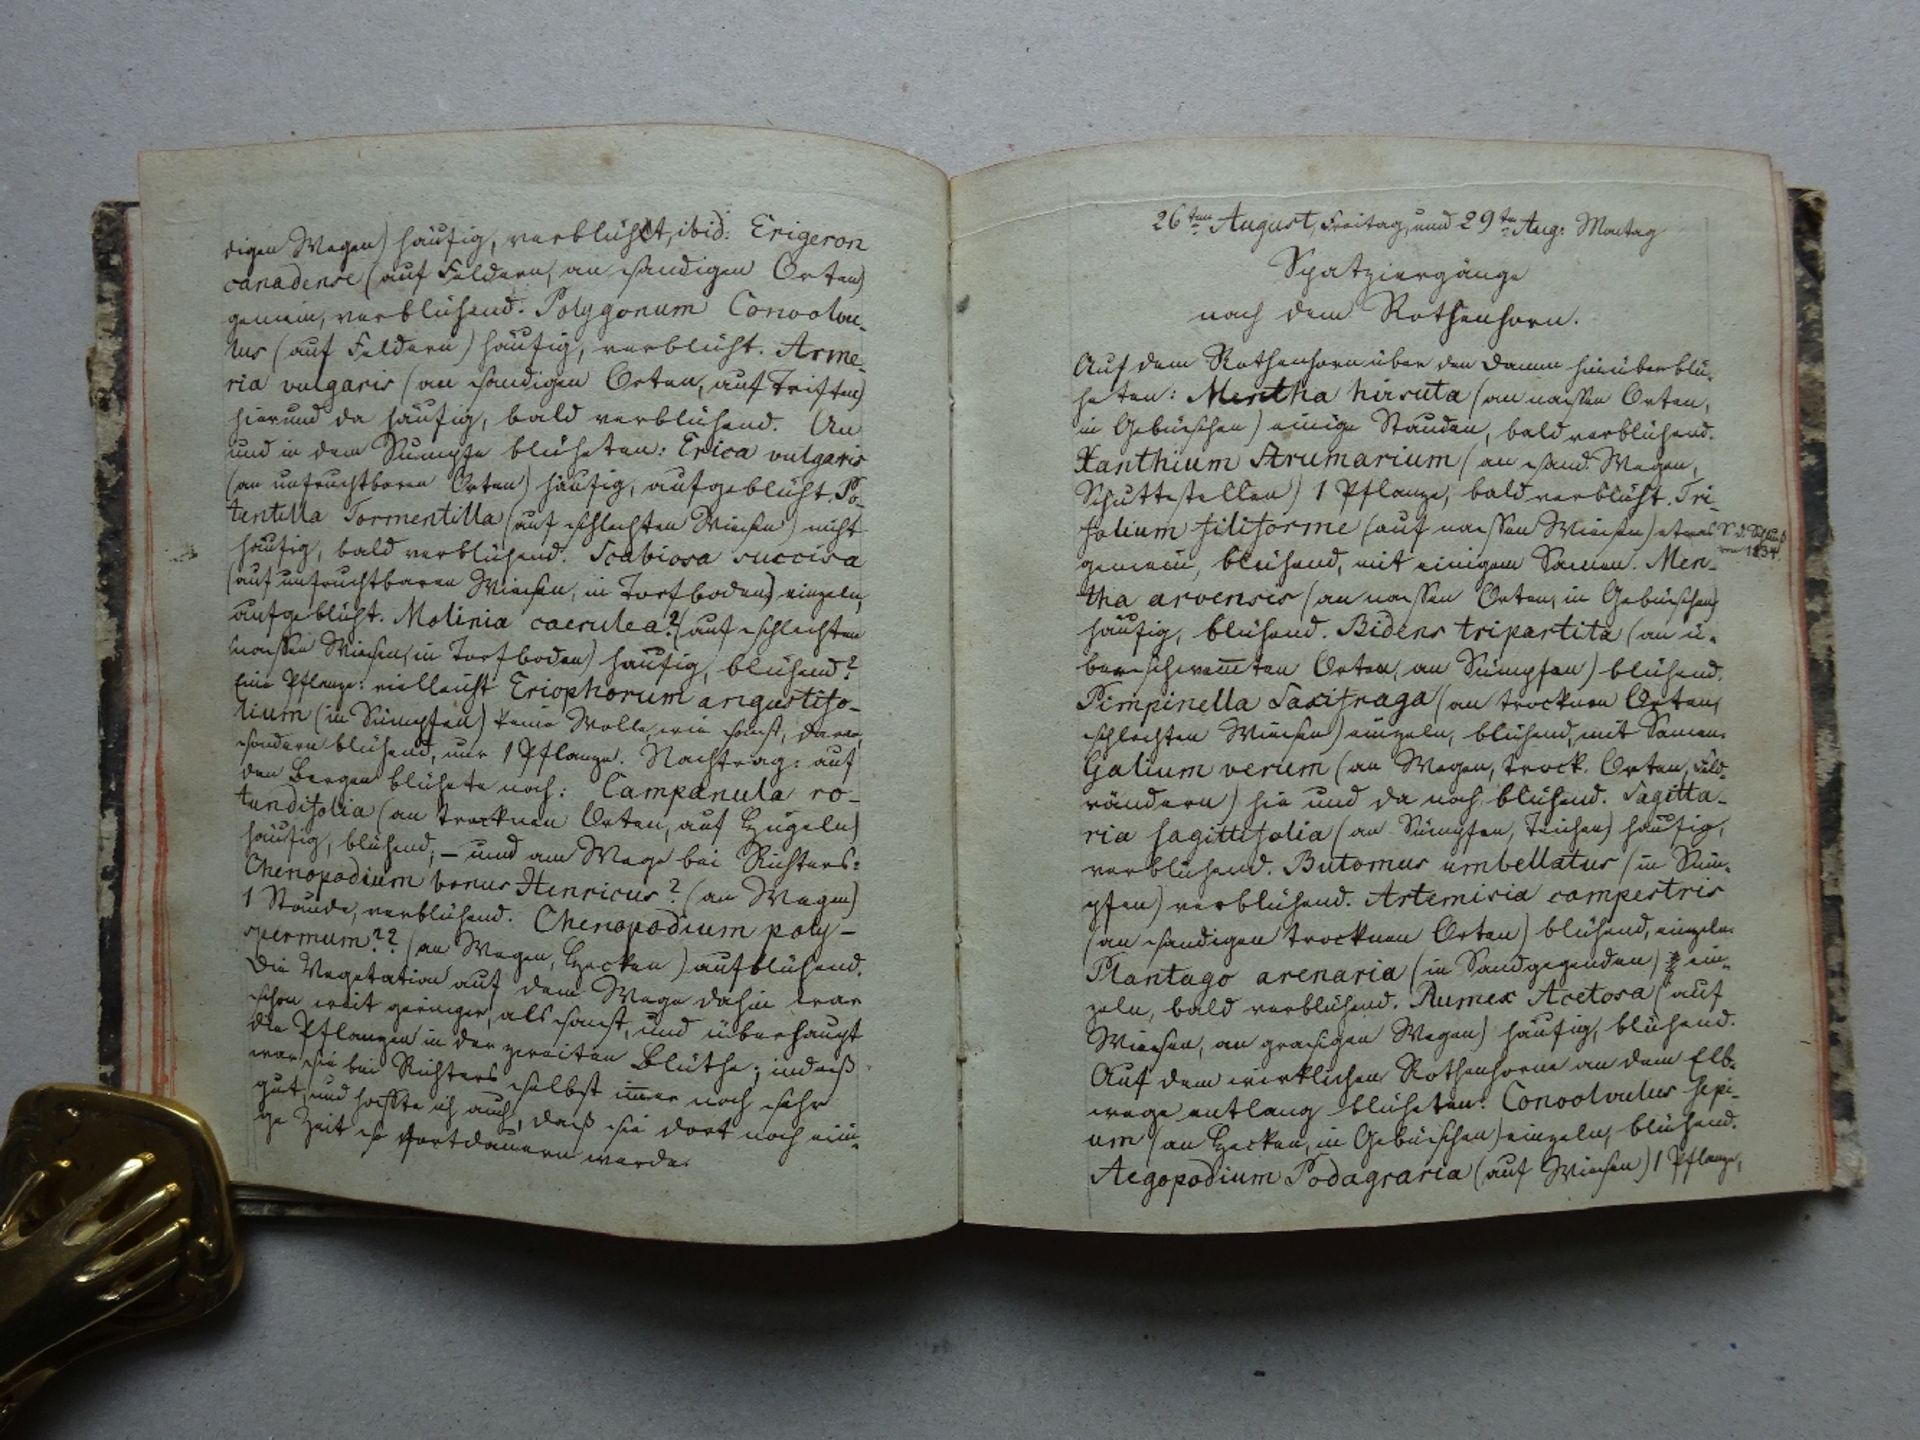 digen Wegen) häufig, verblüht, ibid: Erigeron
canadense (auf Feldern, an sandigen Orten)
gemein, verblühend. Polygonum Convolvu-
lus (auf Feldern) häufig, verblüht. Arme-
ria vulgaris (an sandigen Orten, auf Triften)
hier und da häufig, bald verblühend. An
und in dem Sumpfe blüheten: Erica vulgaris
(an unfruchtbaren Orten) häufig, aufgeblüht. Po-
tentilla Tormentilla (auf schlechten Wiesen) nicht
häufig, bald verblühend. Scabiosa succisa
(auf unfruchtbaren Wiesen, in Torfboden) einzeln,
aufgeblüht. Molinia caerulea? (auf schlechten
nassen Wiesen, in Torfboden) häufig, blühend?
Eine Pflanze: vielleicht Eriophorum angustifo-
lium (in Sümpfen) keine Wolle, wie sonst,
sondern blühend, nur 1 Pflanze. Nachtrag: auf
den Bergen blühete noch: Campanula ro-
tundifolia (an trocknen Orten, auf Hügeln)
häufig, blühend; – und am Wege bei Richters:
Chenopodium bonus Henricus? (an Wegen)
1 Staude, verblühend. Chenopodium poly-
spermum?? (an Wegen, Hecken) aufblühend.
Die Vegetation auf dem Wege dahin war
schon weit geringer, als sonst, und überhaupt
die Pflanzen in der zweiten Blüthe; indeß
war sie bei Richters selbst im̅er noch sehr
gut, und hoffte ich auch, daß sie dort noch eini-
ge Zeit so fortdauern werde.
26ten August, Freitag, und 29te Aug: Montag
Spatziergänge
nach dem Rothenhorn.
Auf dem Rothenhorn über den Damm hinüber blü-
heten: Mentha hirsuta (an nassen Orten,
in Gebüschen) einige Stauden, bald verblühend.
Xanthium Strumarium (an sand. Wegen,
Schuttstellen) 1 Pflanze, bald verblüht. Tri-
folium filiforme (auf nassen Wiesen) etwas
1834.
gemein, blühend, mit einigem Samen. Men-
tha arvensis (an nassen Orten, in Gebüschen)
häufig, blühend. Bidens tripartita (an ü-
berschwem̅ten Orten, an Sümpfen) blühend.
Pimpinella Saxifraga (an trocknen Orten,
schlechten Wiesen) einzeln, blühend, mit Samen.
Galium verum (an Wegen, trock. Orten, Feld-
rändern) hie und da noch blühend. Sagitta-
ria sagittifolia (an Sümpfen, Teichen) häufig,
verblühend. Butomus umbellatus (in Süm-
pfen) verblühend. Artemisia campestris
(an sandigen trocknen Orten) blühend, einzeln.
Plantago arenaria (in Sandgegenden) ein-
zeln, bald verblühend. Rumex Acetosa (auf
Wiesen, an grasigen Wegen) häufig, blühend.
Auf dem wirklichen Rothenhorne an dem Elb-
wege entlang blüheten: Convolvulus sepi-
um (an Hecken, in Gebüschen) einzeln, blühend.
Aegopodium Podagraria (auf Wiesen) 1 Pflanze,